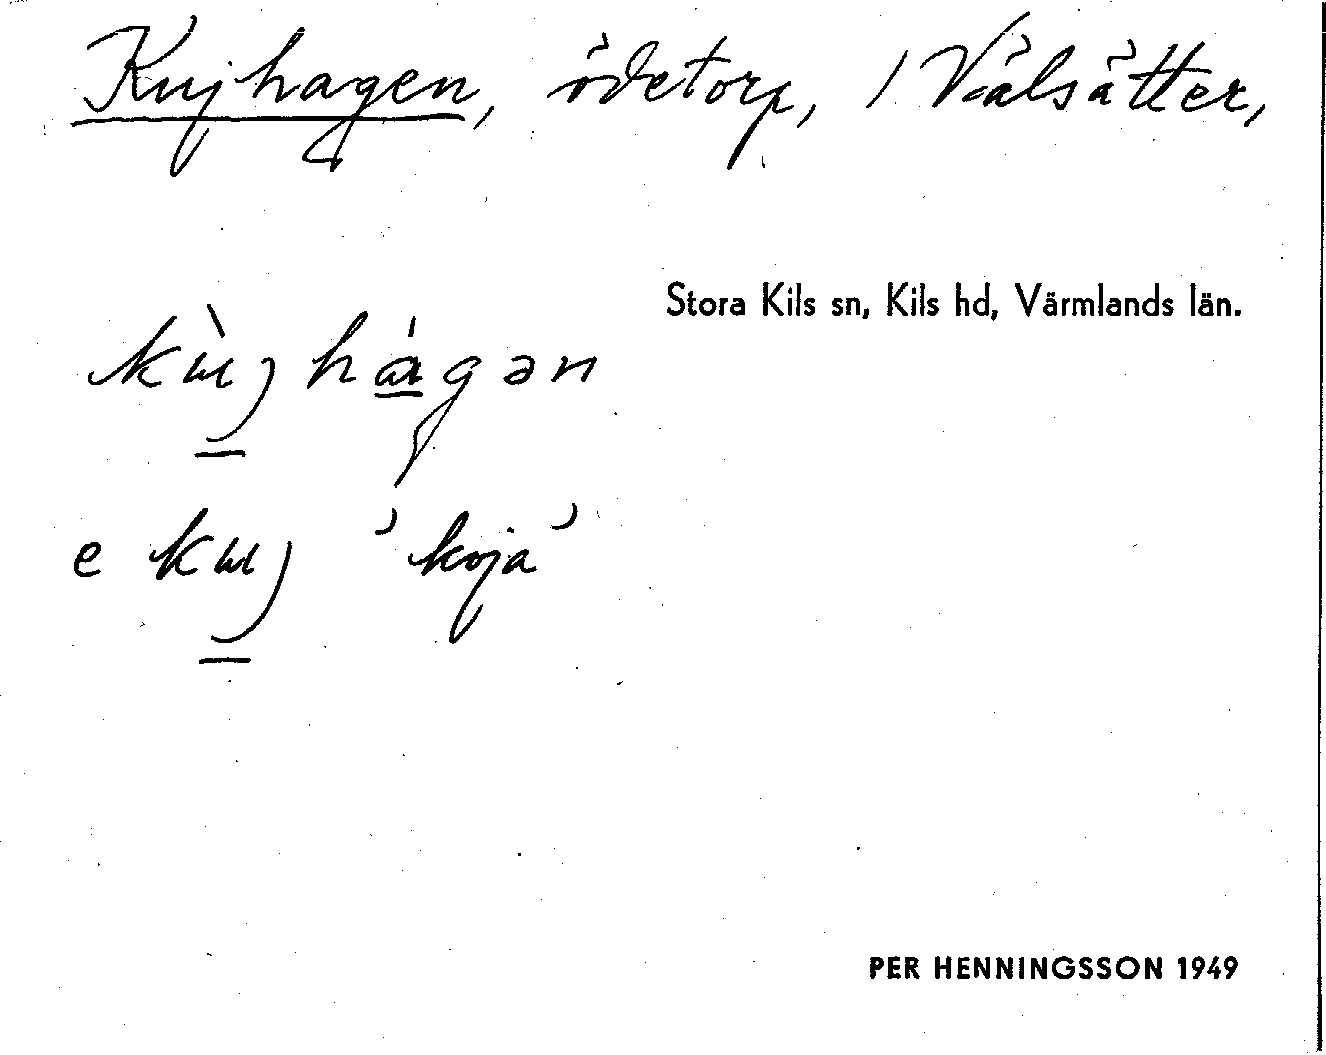 Kujhagen, ödetorp, / Välsätter,
Stora Kils sn, Kils hd, Värmlands län.
kɯ̀j hágən
e kɯj 'koja'
PER HENNINGSSON 1949